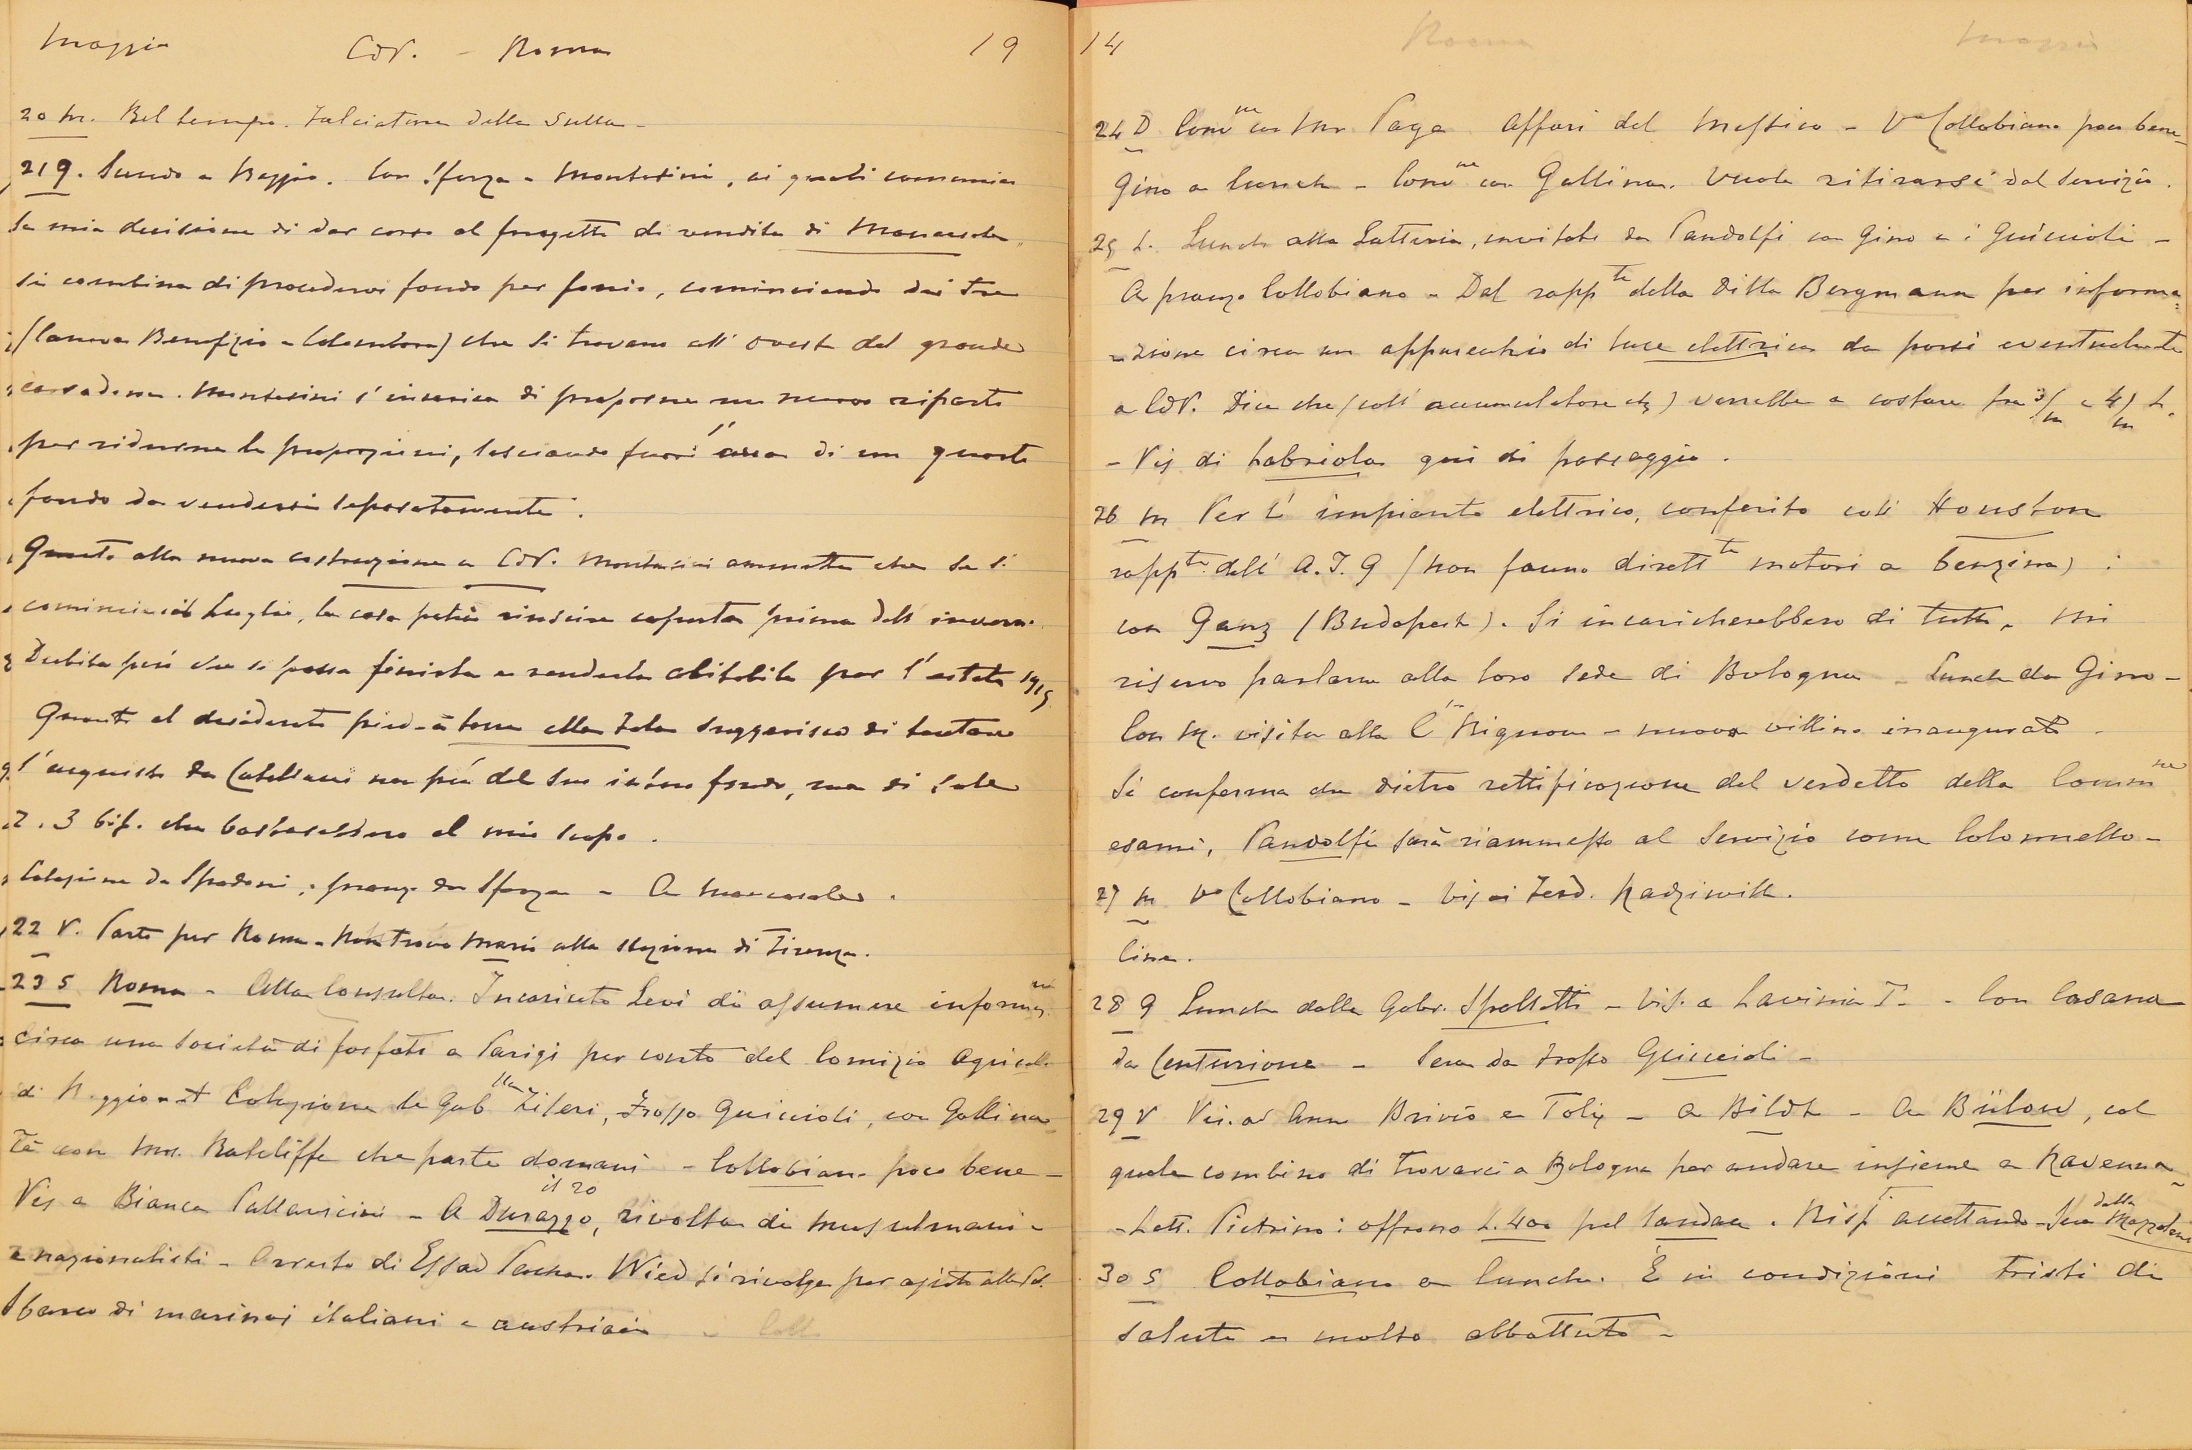 Maggio CdV. - Roma 19
20 M. Bel tempo. Falciatura della Sulla -
21 G. Scendo a Reggio. Con Sforza e Montasini, ai quali comunico
la mia decisione di dar corso al progetto di vendita di Mancasale.
Si combina di procedervi fondo per fondo, cominciando dai tre
(Canova Benefizio e Colombara) che si trovano all' ovest del grande
corpo. Montasini s' incarica di proporne un nuovo riparto
per ridurne le proporzioni, lasciando fuori l' area di un quarto
fondo da vendersi separatamente.
Quanto alla nuova costruzione a CdV. Montasini ammette che se si
comincia in Luglio, la casa potrà riuscire coperta prima dell' inverno.
Dubita però che si possa finirla e renderla abitabile per l' estate 1915
Quanto al desiderato pied-à terre alla Fola suggerisco di tentare
l' acquisto da Catellani non più del suo intero fondo, ma di sole
2. 3 bif. che basterebbero al mio scopo.
Colazione da Spadoni, pranzo da Sforza - A Mancasale.
22 V. Parto per Roma - Non trovo Mario alla stazione di Firenze.
23 S Roma - Alla Consulta. Incaricato Levi di assumere informni
circa una Società di fosfati a Parigi per conto del Comizio Agricolo
di Reggio - Colazione le Gab lla Zileri, Frasso Guiccioli, con Gallina
Tè con Mr. Ratcliffe che parte domani - Collobiano poco bene -
Vis a Bianca Pallavicini - A Durazzo, il 20 rivolta di musulmani e
nazionalisti - Arresto di Essad Pascha. Wied si rivolge per ajuto alle Pot.
Sbarco di marinai italiani e austriaci
14 Roma Maggio
24 D Convne con Mr Page Affari del Messico - Va Collobiano poco bene -
Gino a lunch - Convne con Gallina. Vuole ritirarsi dal servizio.
25 L. Lunch alla Latteria, invitati da Pandolfi con Gino e i Guiccioli -
A pranzo Collobiano - Dal rappte della Ditta Bergmann per informa-
-zione circa un apparecchio di luce elettrica da porsi eventualmte
a CdV. Dice che (coll' accumulatore etc) verrebbe a costare fra 3/m e 4/m L.
- Vis di Labriola qui di passaggio.
26 M Per l' impianto elettrico, conferito coll' Houston
rappte dell' A.T.G (non fanno dirette motori a benzina) :
con Ganz (Budapest). Si incaricherebbero di tutto. Mi
riservo parlarne alla loro sede di Bologna - Lunch da Gino -
Con M. visita alla C sa Rignon - nuovo villino inaugurato -
Si conferma che dietro rettificazione del verdetto della Commne
esami, Pandolfi sarà riammesso al Servizio come Colonnello -
27 M Va Collobiano - Vis ai Ferd. Radziwill.
Cina.
28 G Lunch dalla Gabr. Spalletti - Vis. a Lavinia T. - Con Casana
da Centurione - Sera da Frasso Guiccioli -
29 V Vis. ad Ann Brivio e Toly - A Bildt - A Bülow, col
quale combino di trovarci a Bologna per andare insieme a Ravenna -
- Lett. Pietrino: offrono L. 400 pel landau. Rispi accettando - Sera dalla Mazzoleni
30 S Collobiano a lunch. È in condizioni tristi di
salute e molto abbattuto -